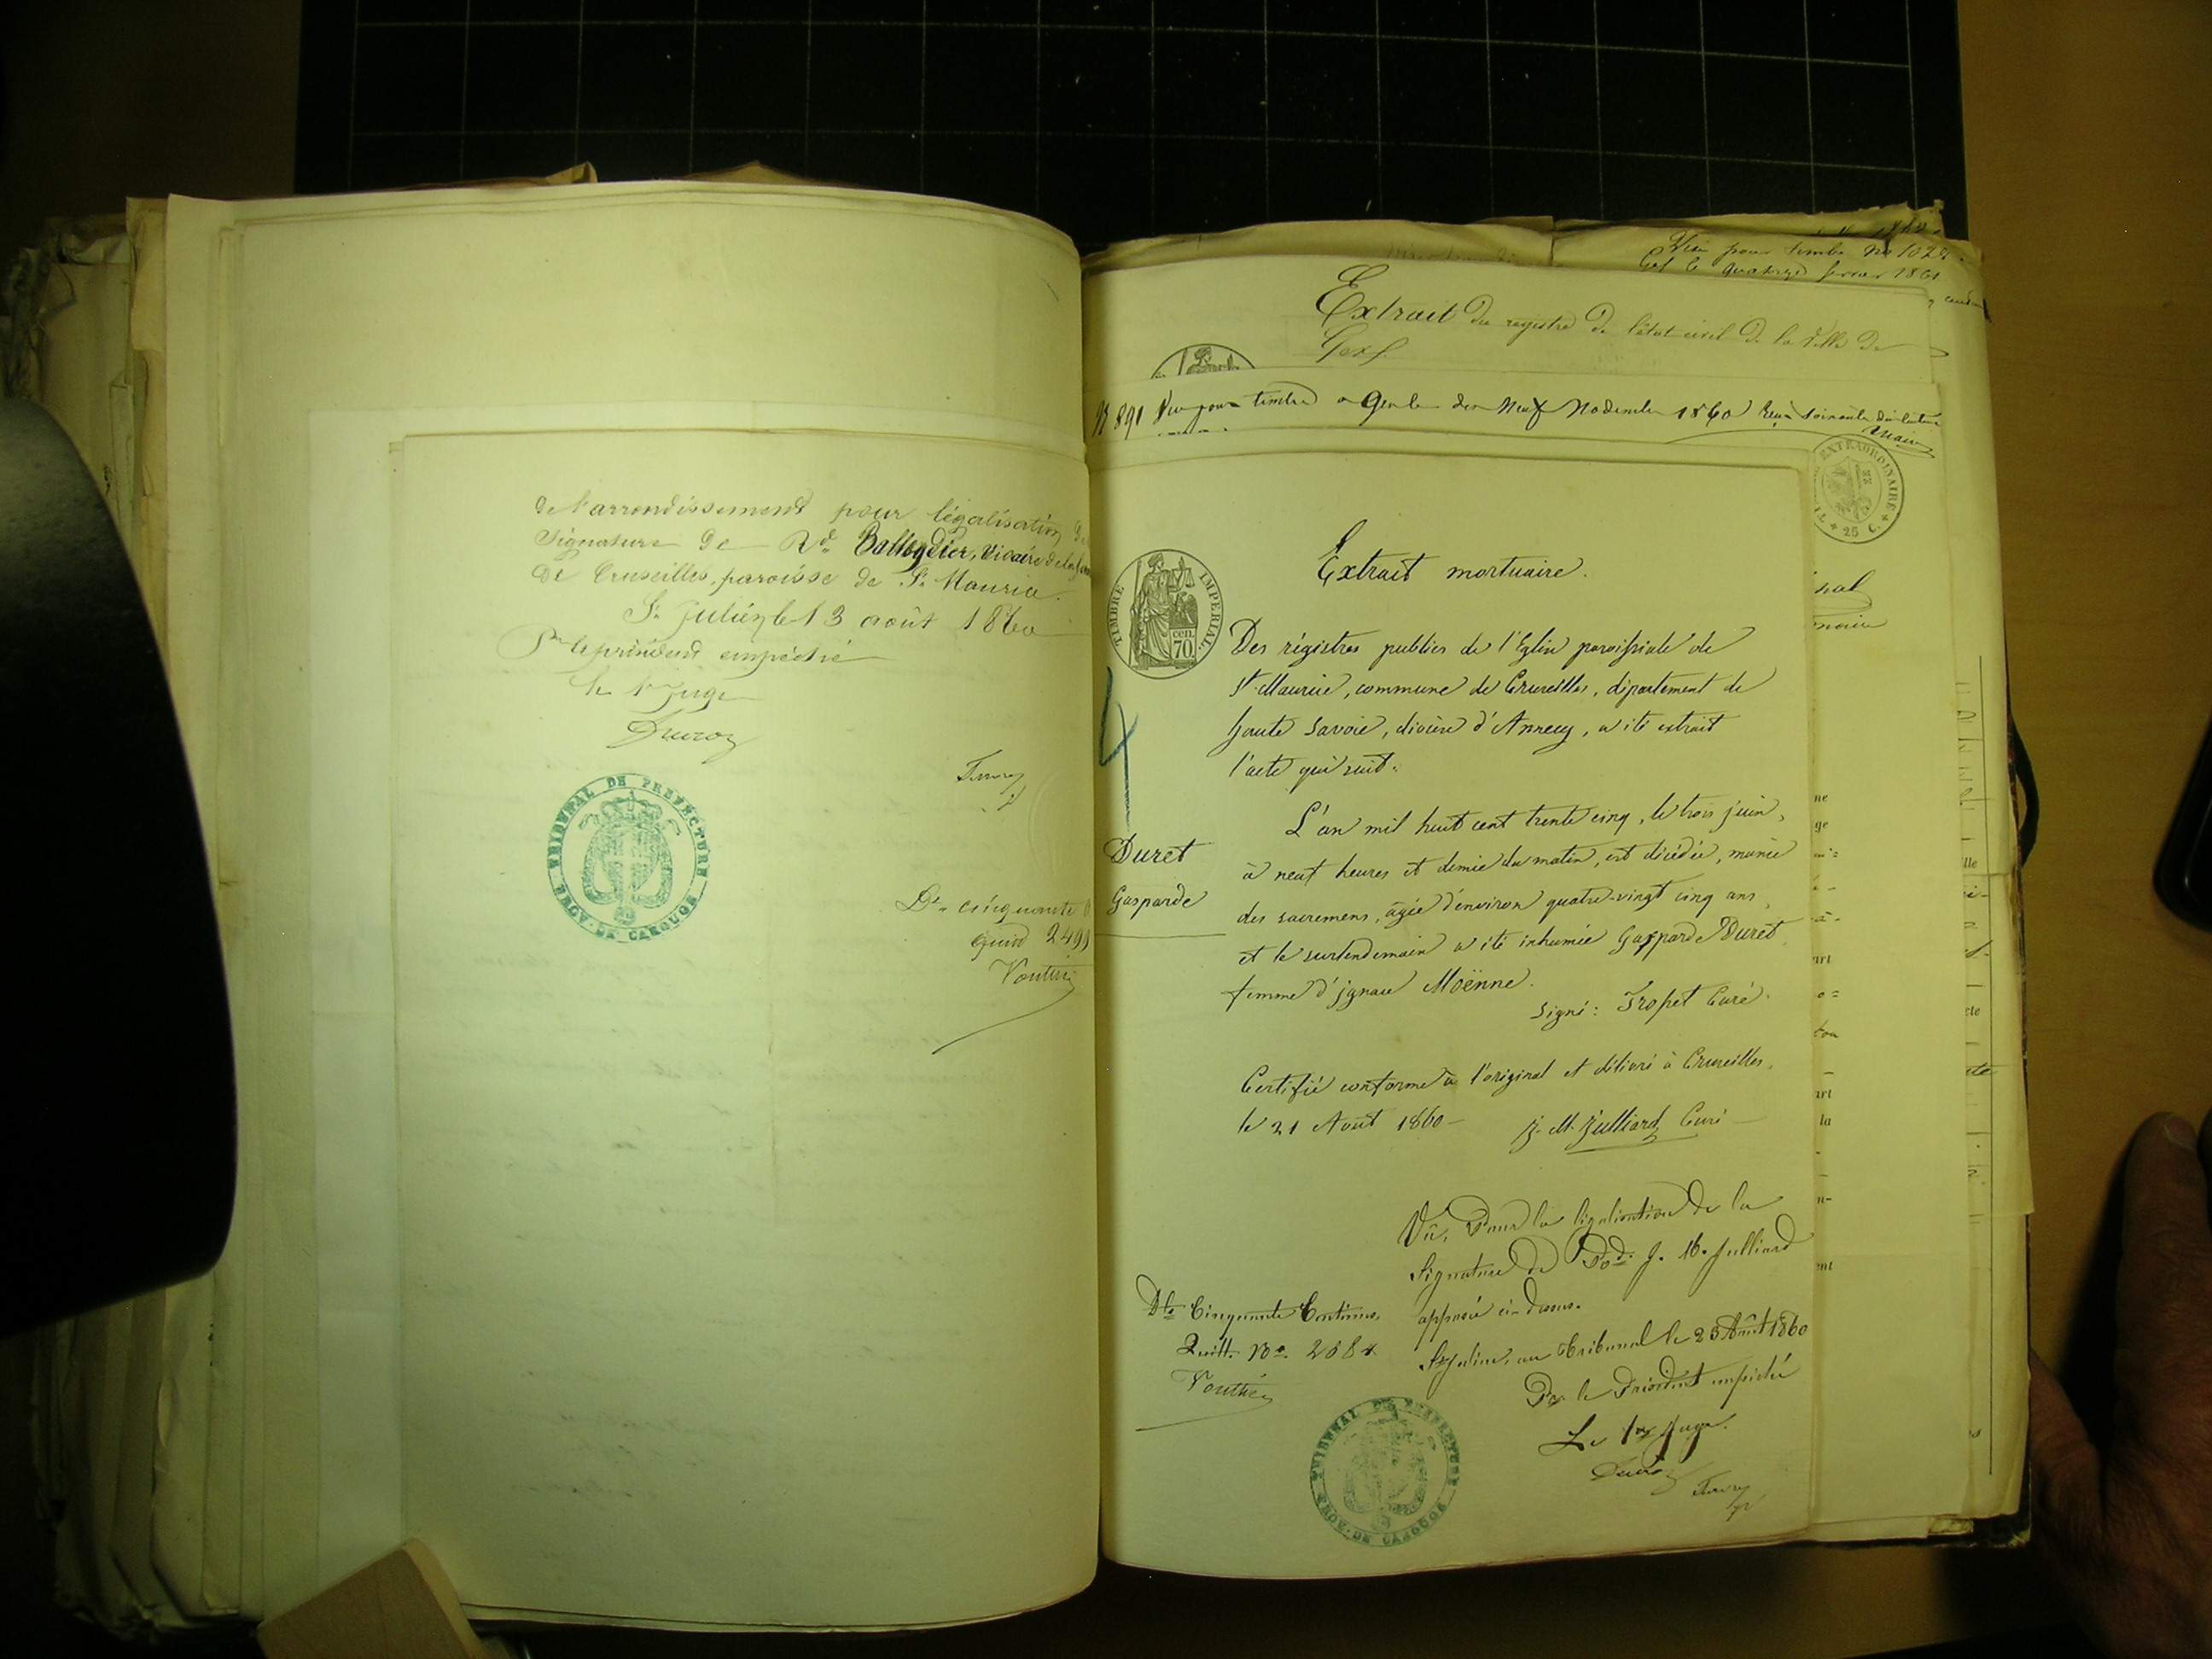 de l'arrondissement pour légalisation de
signature de Rd. Ballydier, vicaire de la
de Cruseilles, paroisse de St. Maurice.
St. Julien le 13 août 1860
Pr le président empêché
le 1er Juge
Duroz
TRIBUNAL DE PREFECTURE
Dts cinquante
quitt 249
Vouthier
Vu pour timbre No 1020.
Gex le quatorze février 1861
Extrait du registre de l'état civil de la Ville de
Gex.
No 891 Vu pour timbre à Genève du neuf Novembre 1860 Reçu soixante dix centimes
EXTRAORDINAIRE
25 C.
TIMBRE IMPERIAL
cen.
70.
Extrait mortuaire.
Des régistres publics de l'Eglise paroissiale de
St Maurice, commune de Cruseilles, département de
haute Savoie, diocèse d'Annecy, a été extrait
l'acte qui suit:
4
Duret
Gasparde
L'an mil huit cent trente cinq, le trois juin,
à neuf heures et demie du matin, est décédée, munie
des sacremens, âgée d'environ quatre-vingt cinq ans,
et le surlendemain a été inhumée Gasparde Duret
femme d'ignace Moënne.
signé: Tropet Curé.
Certifié conforme à l'original et délivré à Cruseilles,
le 21 Août 1860 J. M. Julliard Curé
Vû, Pour la légalisation de la
Signature de Rd. J. M. Julliard
apposée ci-dessus.
St Julien, au Tribunal le 23 Août 1860
Pr le Président empêché
Le 1er Juge.
Duroz
Dts Cinquante Centimes,
Quitt. No. 2684
Vouthier
TRIBUNAL DE PREFECTURE